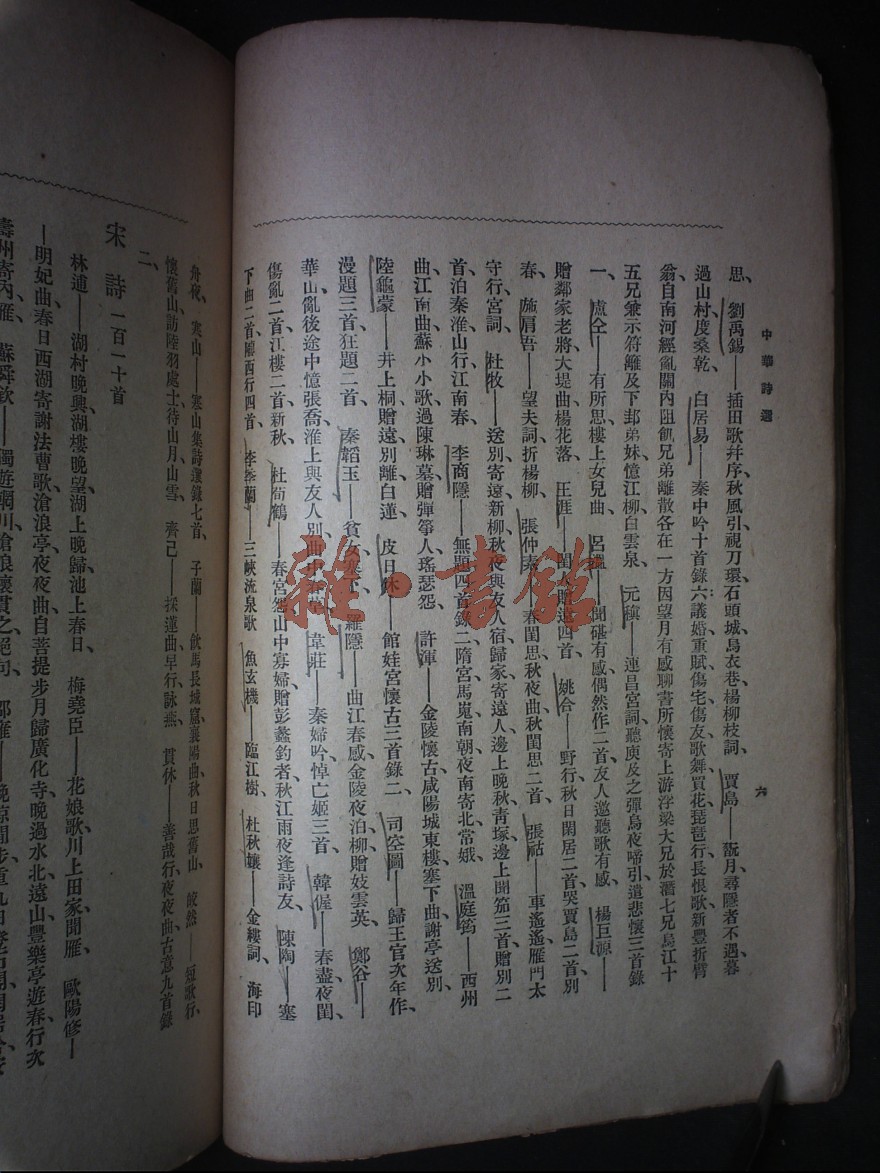 中華詩選
六
思、劉禹錫——插田歌幷序秋風引視刀環石頭城烏衣巷楊柳枝詞、賈島——翫月尋隱者不遇暮
過山村度桑乾、白居易——秦中吟十首錄六議婚重賦傷宅傷友歌舞買花琵琶行長恨歌新豐折臂
翁自南河經亂關內阻飢兄弟離散各在一方因望月有感聊書所懷寄上浮梁大兄於潛七兄烏江十
五兄兼示符離及下邽弟妹憶江柳白雲泉、元稹——連昌宮詞聽庾及之彈烏夜啼引遣悲懷三首錄
一、盧仝——有所思樓上女兒曲、呂溫——聞砧有感偶然作二首友人邀聽歌有感、楊巨源——
贈鄰家老將大堤曲楊花落、王涯——閨人贈遠四首、姚合——野行秋日閑居二首哭賈島二首別
春、施肩吾——望夫詞折楊柳、張仲素——春閨思秋夜曲秋閨思二首、張祜——車遙遙雁門太
守行宮詞、杜牧——送別寄遠新柳秋夜與友人宿歸家寄遠人邊上晚秋青塚邊上聞笳三首贈別二
首泊秦淮山行江南春、李商隱——無題四首錄二隋宮馬嵬南朝夜雨寄北常娥、溫庭筠——西州
曲江南曲蘇小小歌過陳琳墓贈彈箏人瑤瑟怨、許渾——金陵懷古咸陽城東樓塞下曲謝亭送別、
陸龜蒙——井上桐贈遠別離白蓮、皮日休——館娃宮懷古三首錄二、司空圖——歸王官次年作、
漫題三首狂題二首、秦韜玉——貧女塞下、羅隱——曲江春感金陵夜泊柳贈妓雲英、鄭谷——
華山亂後途中憶張喬淮上與友人別曲江春草、韋莊——秦婦吟悼亡姬三首、韓偓——春盡夜閨、
傷亂二首江樓二首新秋、杜荀鶴——春宮怨山中寡婦贈彭蠡釣者秋江雨夜逢詩友、陳陶——塞
下曲二首隴西行四首、李季蘭——三峽流泉歌、魚玄機——臨江樹、杜秋孃——金縷詞、海印
舟夜、寒山——寒山集詩選錄七首、子蘭——飲馬長城窟襄陽曲秋日思舊山、皎然——短歌行、
懷舊山訪陸羽處士待山月山雪、齊己——採蓮曲早行詠燕、貫休——善哉行夜夜曲古意九首錄
二、
宋詩 一百一十首
林逋——湖村晚興湖樓晚望湖上晚歸池上春日、梅堯臣——花娘歌川上田家聞雁、歐陽修—
—明妃曲春日西湖寄謝法曹歌滄浪亭夜夜曲自菩提步月歸廣化寺晚過水北遠山豐樂亭遊春行次
壽州寄內雁、蘇舜欽——獨遊輞川滄浪懷貫之絕句、邵雍——晚涼閒步重九日登石閣閒居
雜·書館